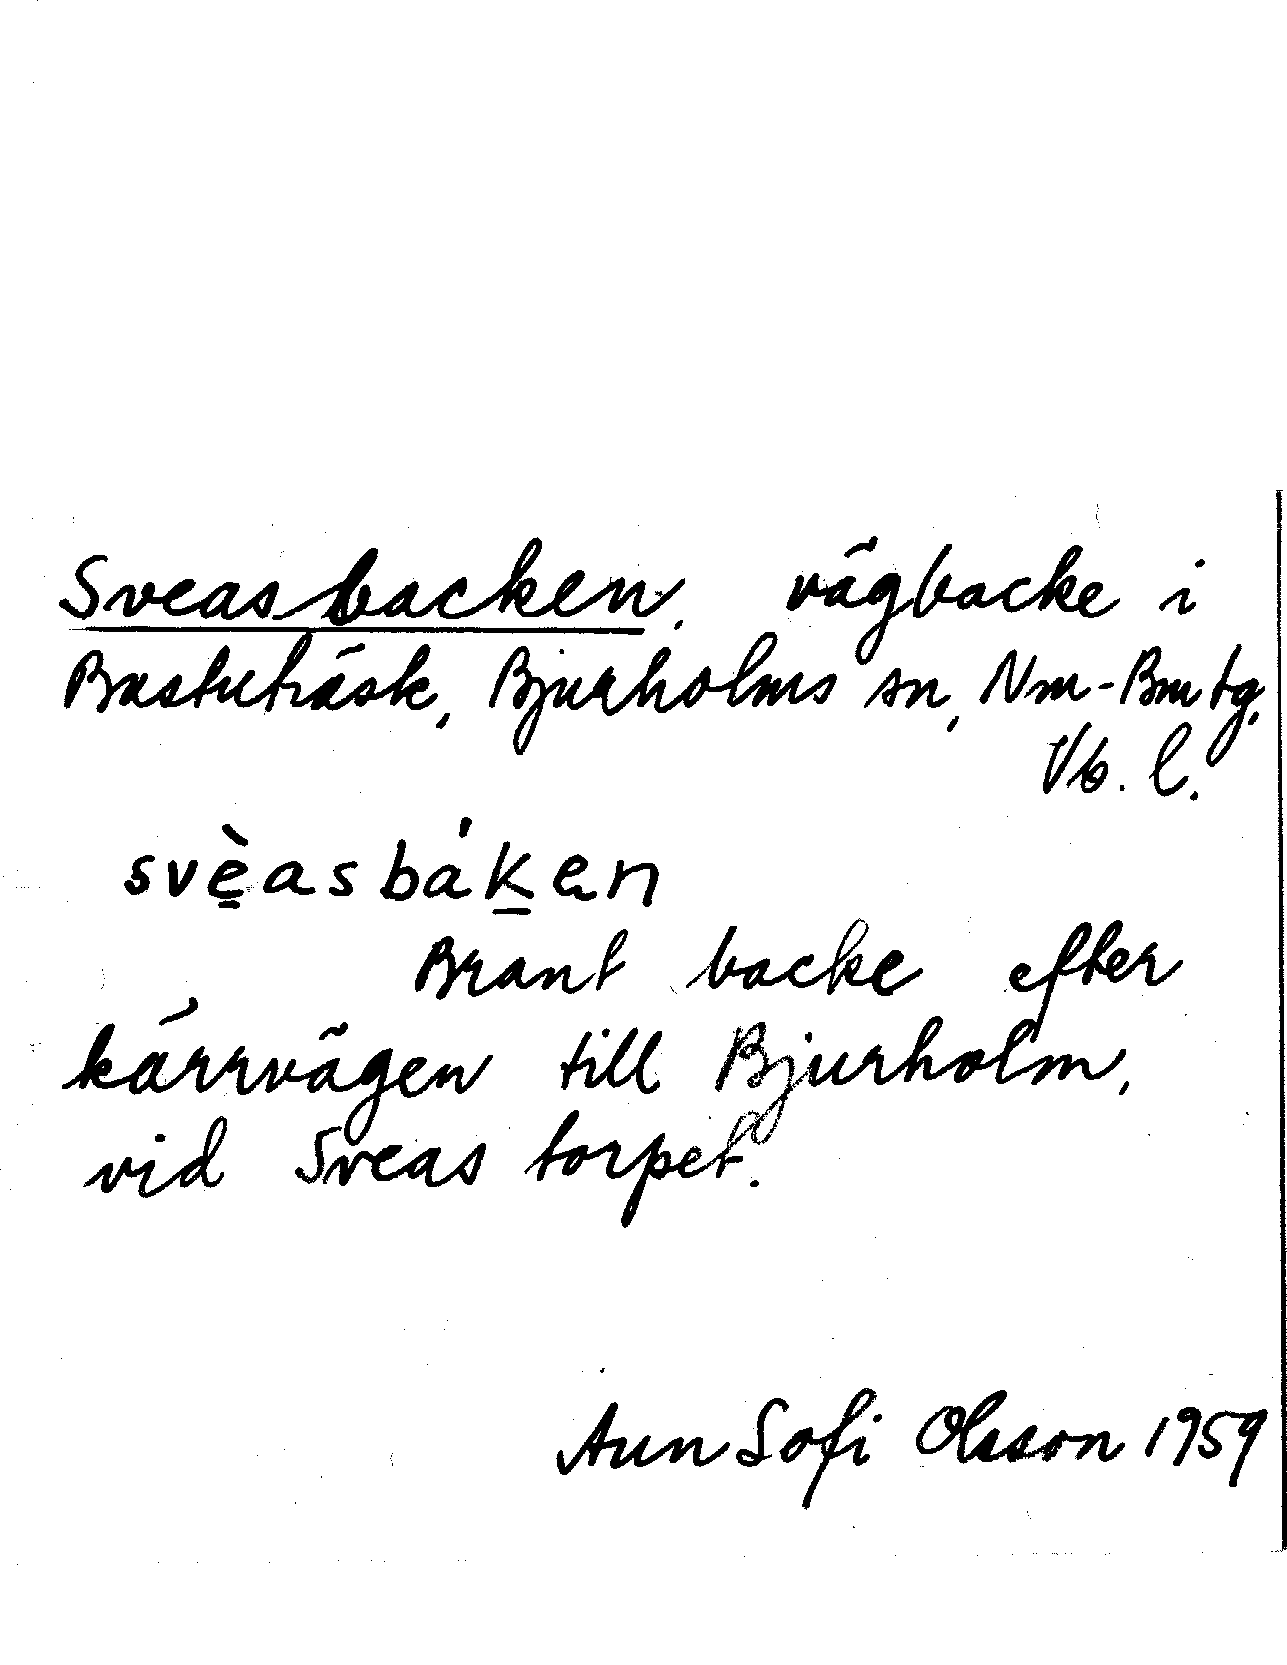 Sveasbacken. vägbacke i
Bastuträsk, Bjurholms sn, Nm-Bm tg,
Vb. l.
svè̲asbák̲en
Brant backe efter
kärrvägen till Bjurholm,
vid Sveas torpet.
Ann Sofi Olsson 1959